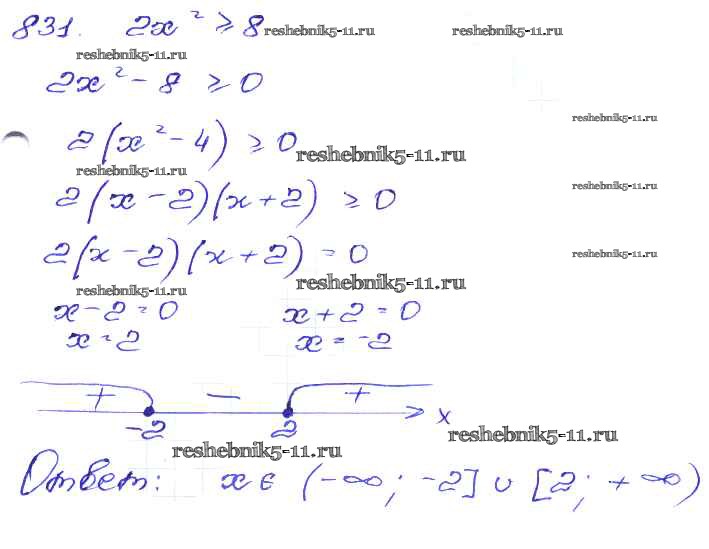 831. 2x² ≥ 8 reshebnik5-11.ru reshebnik5-11.ru
reshebnik5-11.ru
2x² - 8 ≥ 0
reshebnik5-11.ru
2(x² - 4) ≥ 0 reshebnik5-11.ru
reshebnik5-11.ru
reshebnik5-11.ru
2(x - 2)(x + 2) ≥ 0
2(x - 2)(x + 2) = 0 reshebnik5-11.ru
reshebnik5-11.ru reshebnik5-11.ru
x - 2 = 0 x + 2 = 0
x = 2 x = -2
+ - +
-2 2 x
reshebnik5-11.ru reshebnik5-11.ru
Ответ: x ∈ (-∞; -2] ∪ [2; +∞)